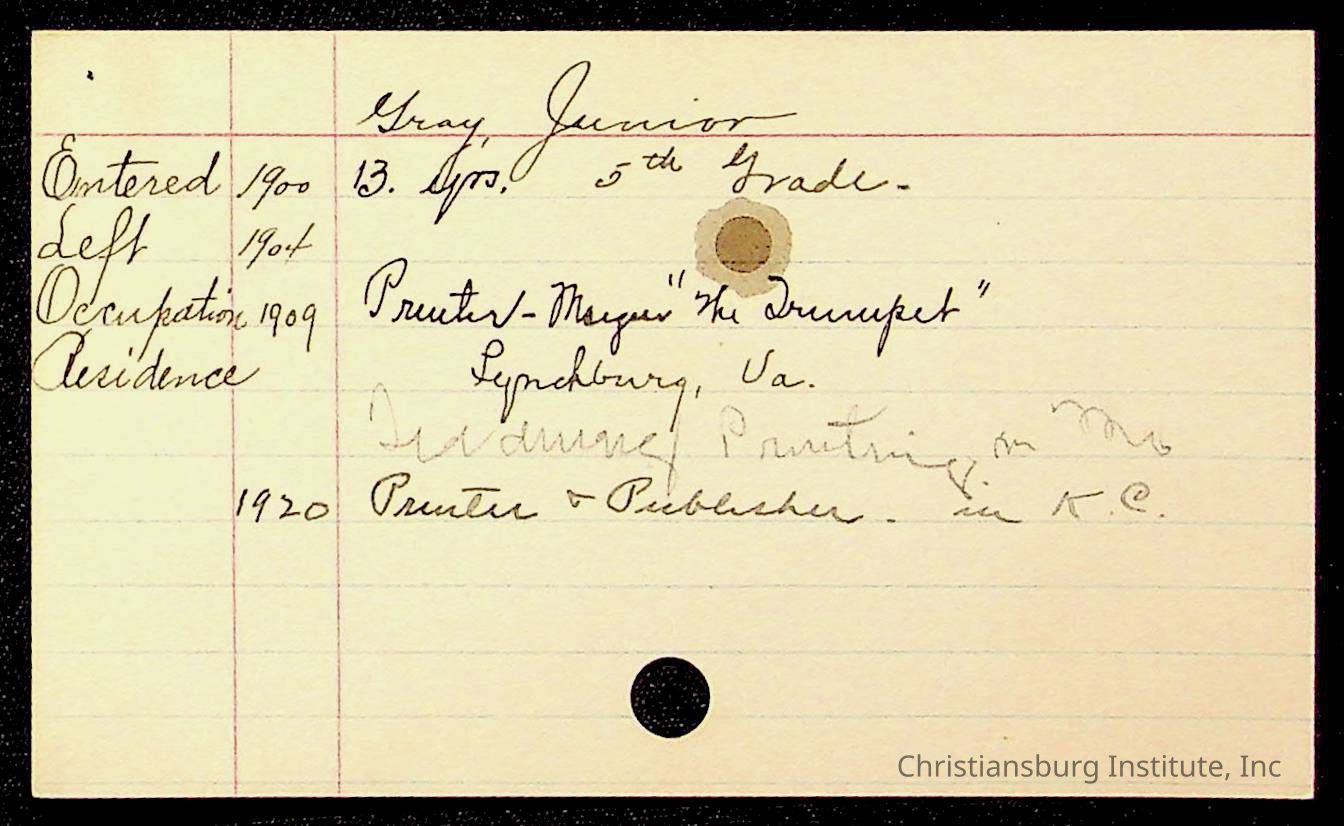 Gray, Junior
Entered 1900 13. yrs. 5th Grade.
Left 1904
Occupation 1909 Printer - "The Trumpet"
Residence Lynchburg, Va.
Printing in Mo
1920 Printer & Publisher. in K.C.
Christiansburg Institute, Inc